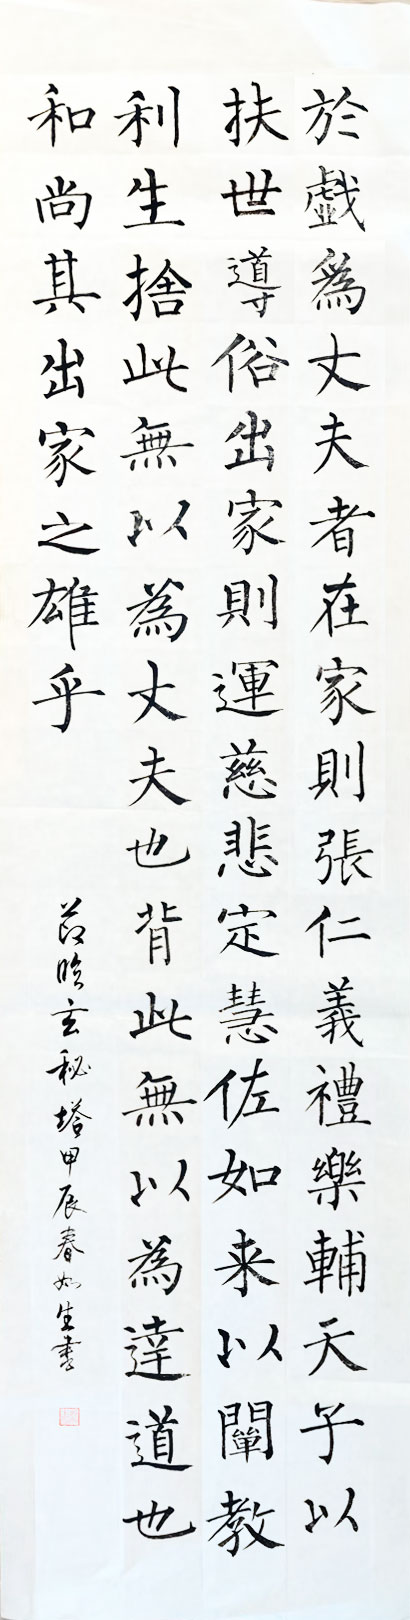 於戲為丈夫者在家則張仁義禮樂輔天子以
扶世導俗出家則運慈悲定慧佐如来以闡教
利生捨此無以為丈夫也背此無以為達道也
和尚其出家之雄乎
節臨玄秘塔甲辰春如生書